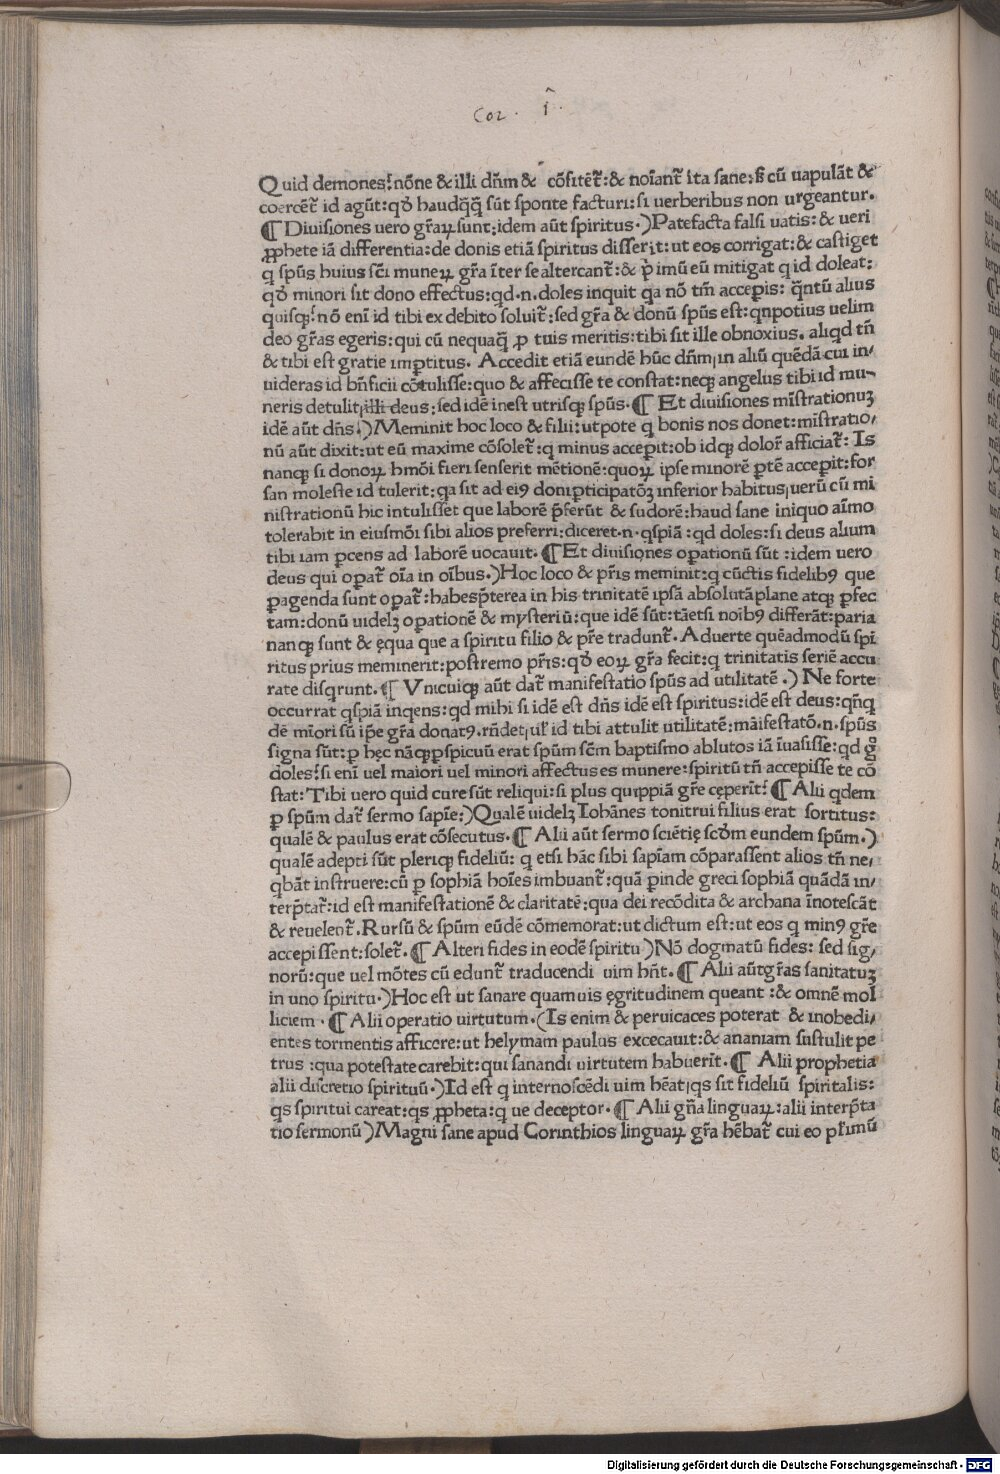 Cor. I.
Quid demones? nōne & illi dn̄m & cōfitēt᷑: & noīant᷑ ita sane: s; cū uapulāt &
coercēt᷑ id agūt: qđ haudq̄q̄ sūt sponte facturi: si uerberibus non urgeantur.
¶ Diuisiones uero gr̄aꝝ sunt: idem aūt spiritus.) Patefacta falsi uatis: & ueri
ꝓphete iā differentia: de donis etiā spiritus disserit: ut eos corrigat: & castiget
q sp̄us huius sc̄i muneꝝ gr̄a īter se altercant᷑: & p̄imū eū mitigat q id doleat:
qđ minori sit dono effectus: qd .n. doles inquit qa nō tm̄ accepis: q̄ntū alius
quisqꝫ? nō enī id tibi ex debito soluit᷑: sed gr̄a & donū sp̄us est: qnpotius uelim
deo gr̄as egeris: qui cū nequaq̄ ꝓ tuis meritis: tibi sit ille obnoxius. aliqd tn̄
& tibi est gratie imꝑtitus. Accedit etiā eundē hūc dn̄m, in aliū quēdā cui in/
uideras id bn̄ficii cōtulisse: quo & affecisse te constat: neqꝫ angelus tibi id mu-
neris detulit, illi deus: sed idē inest utrisqꝫ sp̄us. ¶ Et diuisiones mīstrationuꝫ
idē aūt dn̄s.) Meminit hoc loco & filii: utpote q bonis nos donet: mīstratio/
nū aūt dixit: ut eū maxime cōsolet᷑: q minus accepit: ob idqꝫ dolor̄ afficiat᷑: Is
nanqꝫ si donoꝝ hmōi fieri senserit mētionē: quoꝝ ipse minorē ꝑtē accepit: for
san moleste id tulerit: qa sit ad eiꝰ doniꝑticipatōꝫ inferior habitus, uerū cū mi
nistrationū hic intulisset que laborē p̄ferūt & sudorē: haud sane iniquo aīmo
tolerabit in eiusmōi sibi alios preferri: diceret .n. qspiā: qd doles: si deus alium
tibi iam ꝑcens ad laborē uocauit. ¶ Et diuisiones oꝑationū sūt: idem uero
deus qui oꝑat᷑ oīa in oībus.) Hoc loco & pr̄is meminit: q cūctis fidelibꝰ que
ꝑagenda sunt oꝑat᷑: habes p̄terea in his trinitatē ipsā absolutā plane atqꝫ ꝑfec
tam: donū uidelꝫ oꝑationē & mysteriū: que idē sūt: tāetsi noībꝰ differāt: paria
nanqꝫ sunt & ęqua que a spiritu filio & pr̄e tradunt᷑. Aduerte quēadmodū spi
ritus prius meminerit: postremo pr̄is: qđ eoꝝ gr̄a fecit: q trinitatis seriē accu
rate disqrunt. ¶ Vnicuiqꝫ aūt dat᷑ manifestatio sp̄us ad utilitatē.) Ne forte
occurrat qspiā inqens: qd mihi si idē est dn̄s idē est spiritus: idē est deus: qn̄q
dē mīori sū ip̄e gr̄a donatꝰ. rn̄det, ul̄ id tibi attulit utilitatē: māifestatō .n. sp̄us
signa sūt: ꝑ hęc nāqꝫ ꝑspicuū erat sp̄um sc̄m baptismo ablutos iā īuasisse: qd g̊
doles? si enī uel maiori uel minori affectus es munere: spiritū tn̄ accepisse te cō
stat: Tibi uero quid cure sūt reliqui: si plus quippiā gr̄e cęperīt? ¶ Alii qdem
ꝑ sp̄um dat᷑ sermo sapīe:) Qualē uidelꝫ Iohānes tonitrui filius erat sortitus:
qualē & paulus erat cōsecutus. ¶ Alii aūt sermo sciētię scđm eundem sp̄um.)
qualē adepti sūt pleriqꝫ fideliū: q etsi hāc sibi sapīam cōparassent alios tn̄ ne/
qbāt instruere: cū ꝑ sophiā hoīes imbuant᷑: quā ꝑinde greci sophiā quādā in/
terp̄tat᷑: id est manifestationē & claritatē: qua dei recōdita & archana īnotescāt
& reuelent᷑. Rursū & sp̄um eūdē cōmemorat: ut dictum est: ut eos q minꝰ gr̄e
accepissent: solet᷑. ¶ Alteri fides in eodē spiritu) Nō dogmatū fides: sed sig/
norū: que uel mōtes cū edunt᷑ traducendi uim hn̄t. ¶ Alii aūt gr̄as sanitatuꝫ
in uno spiritu.) Hoc est ut sanare quamuis ęgritudinem queant: & omnē mol
liciem. ¶ Alii operatio uirtutum. (Is enim & peruicaces poterat & inobedi/
entes tormentis afficere: ut helymam paulus excecauit: & ananiam sustulit pe
trus: qua potestate carebit: qui sanandi uirtutem habuerīt. ¶ Alii prophetia
alii discretio spirituū.) Id est q internoscēdi uim hēat, qs sit fideliū spiritalis:
qs spiritui careat: qs ꝓpheta: q ue deceptor. ¶ Alii gn̄a linguaꝝ: alii interp̄ta
tio sermonū) Magni sane apud Corinthios linguaꝝ gr̄a hēbat᷑ cui eo pr̄imū
Digitalisierung gefördert durch die Deutsche Forschungsgemeinschaft - DFG